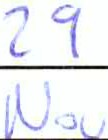 29
Nov